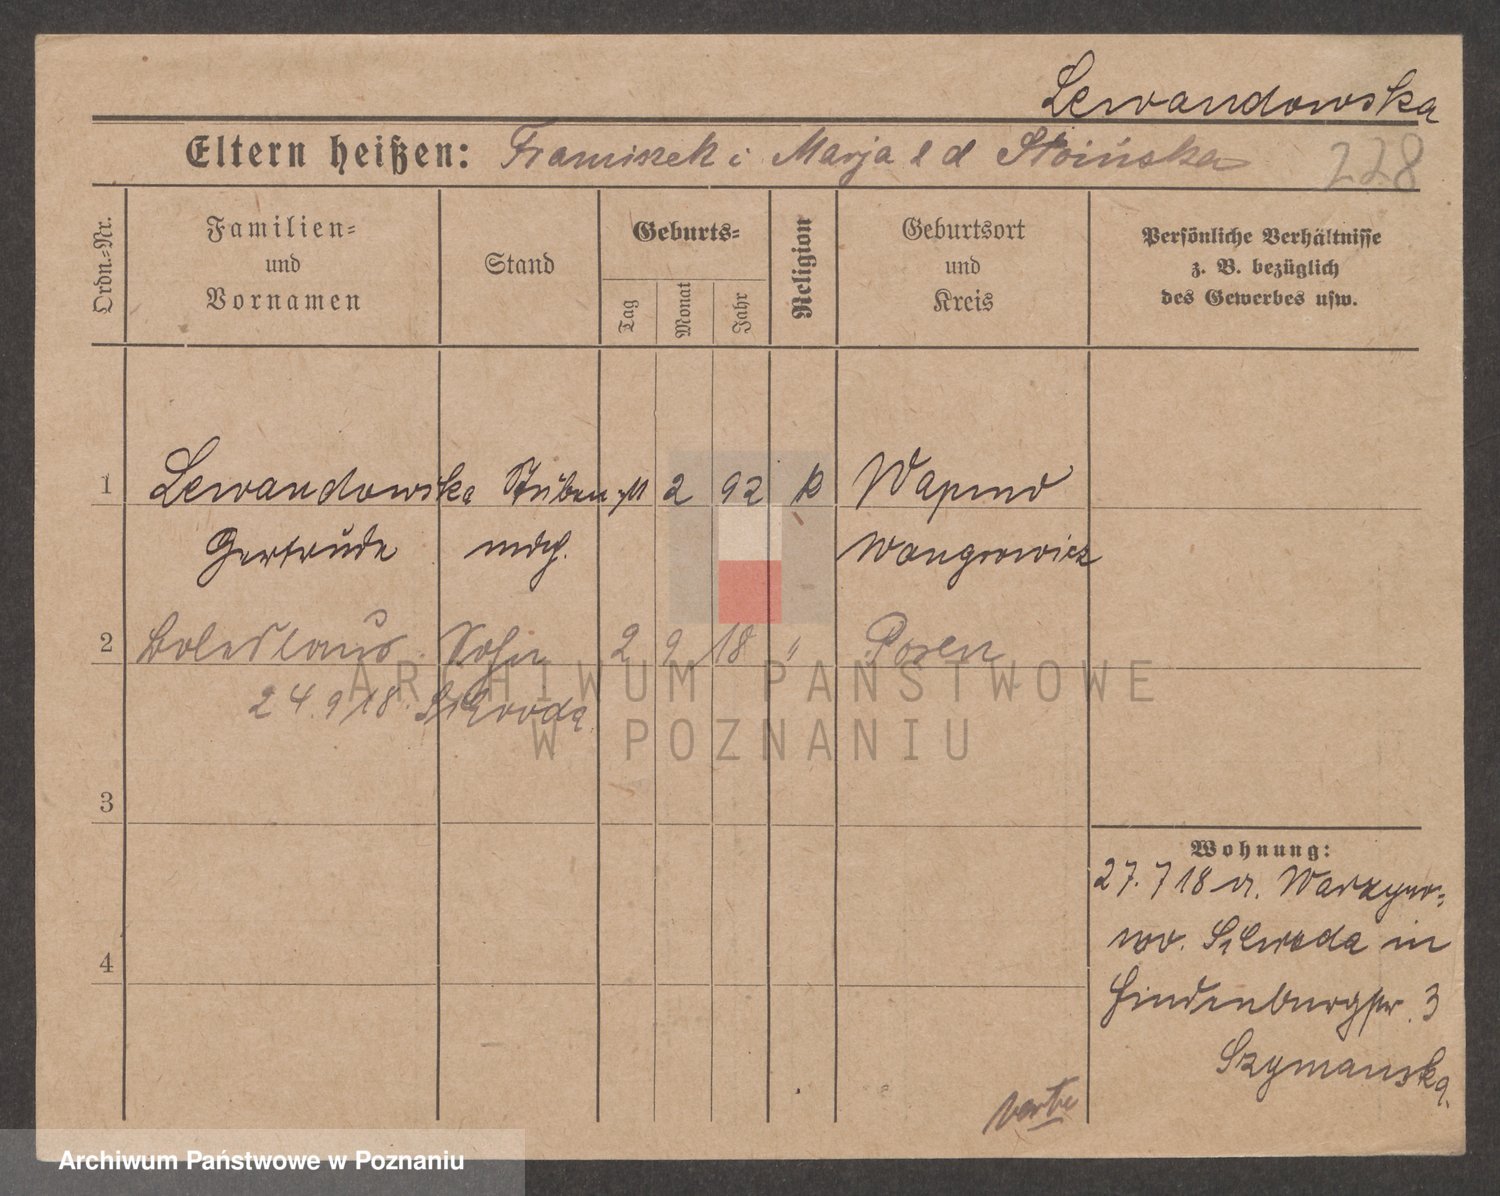 Lewandowska
Eltern heißen: Franciszek i Marja z d Stoińska
228
Ordn.-Nr.
Familien- und Vornamen
Stand
Geburts-
Tag
Monat
Jahr
Religion
Geburtsort und Kreis
Persönliche Verhältnisse
z. B. bezüglich
des Gewerbes usw.
1 Lewandowska Stuben 2 92 k Wapno
Gertrude mdch. Wongrowicz
2 Boleslaus Sohn 2 9 18 " Posen
24. 9 18. Schroda
ARCHIWUM PAŃSTWOWE
W POZNANIU
3
Wohnung:
27. 7 18 v.
Schroda in
4
Hindenburgstr. 3
Szymanska
verte
Archiwum Państwowe w Poznaniu